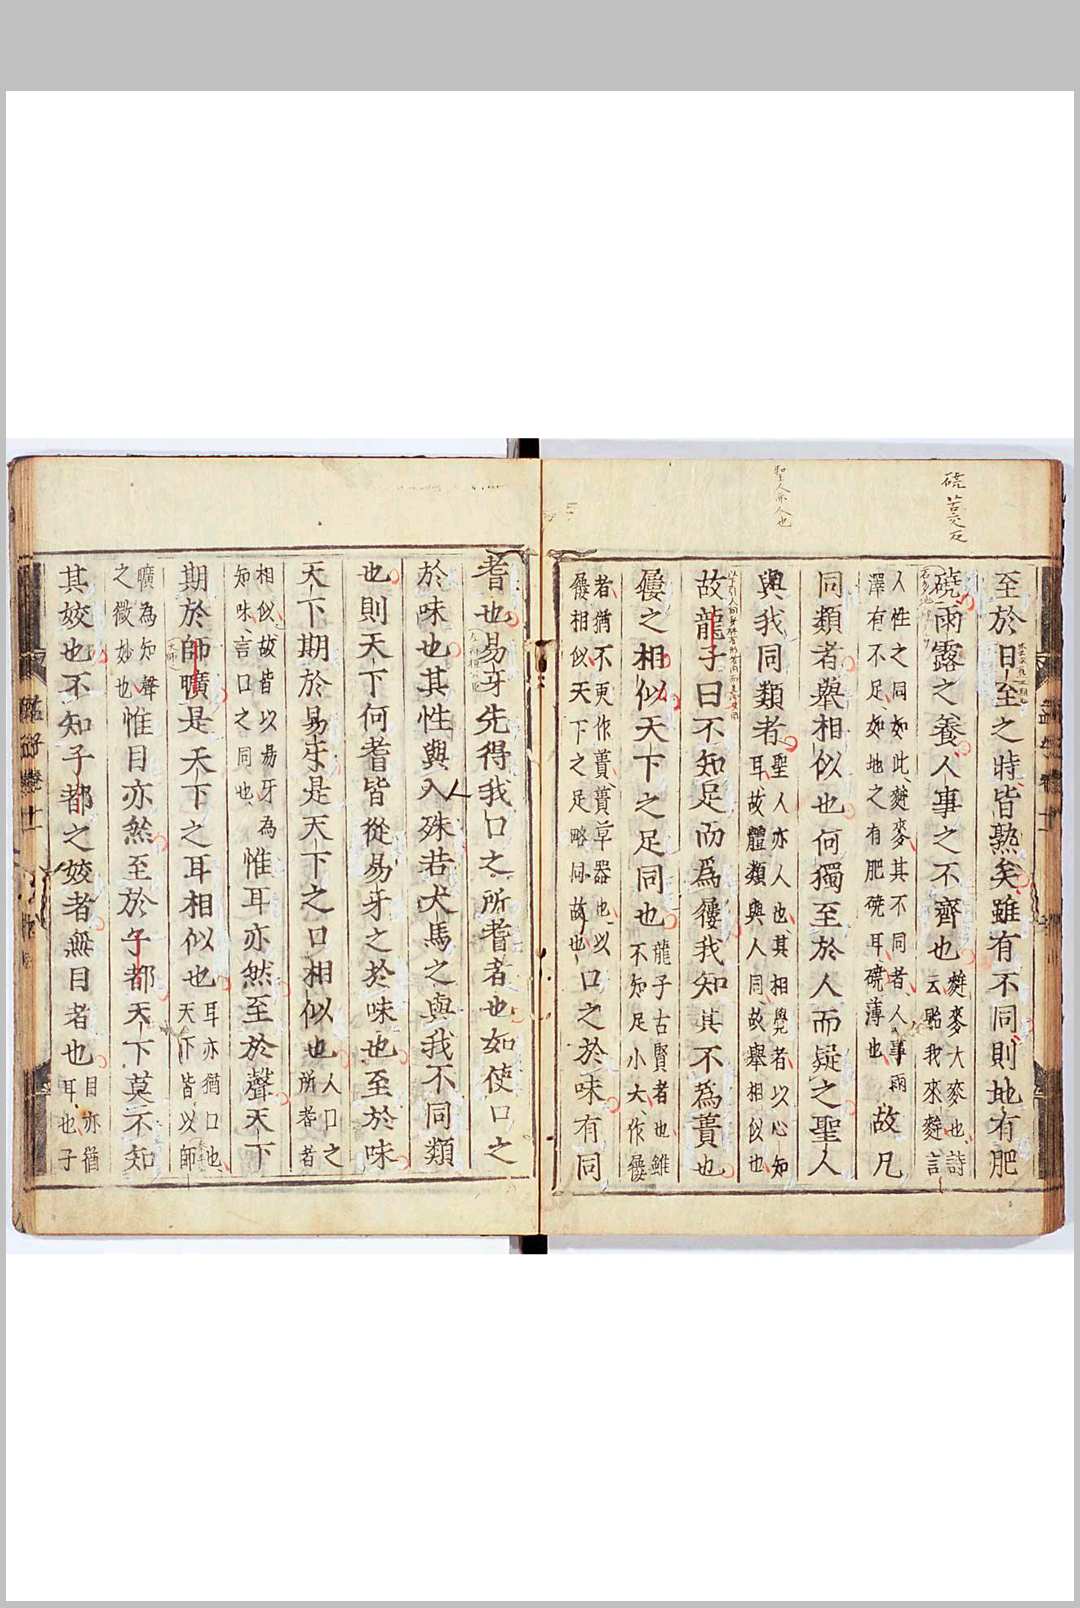 至於日至之時皆熟矣雖有不同則地有肥
磽雨露之養人事之不齊也
麰麥大麥也詩
云貽我來麰言
人性之同如此麰麥其不同者人事雨
澤有不足如地之有肥磽耳磽薄也
故凡
同類者舉相似也何獨至於人而疑之聖人
與我同類者
聖人亦人也其相覺者以心知
耳故體類與人同故舉相似也
故龍子曰不知足而爲屨我知其不爲蕢也
屨之相似天下之足同也
龍子古賢者也雖
不知足小大作屨
者猶不更作蕢蕢草器也以
屨相似天下之足略同故也
口之於味有同
耆也易牙先得我口之所耆者也如使口之
於味也其性與人殊若犬馬之與我不同類
也則天下何耆皆從易牙之於味也至於味
天下期於易牙是天下之口相似也
人口之
所耆者
相似故皆以易牙為
知味言口之同也
惟耳亦然至於聲天下
期於師曠是天下之耳相似也
耳亦猶口也
天下皆以師
曠為知聲
之微妙也
惟目亦然至於子都天下莫不知
其姣也不知子都之姣者無目者也
目亦猶
耳也子
聖人亦人也
磽 苦交反